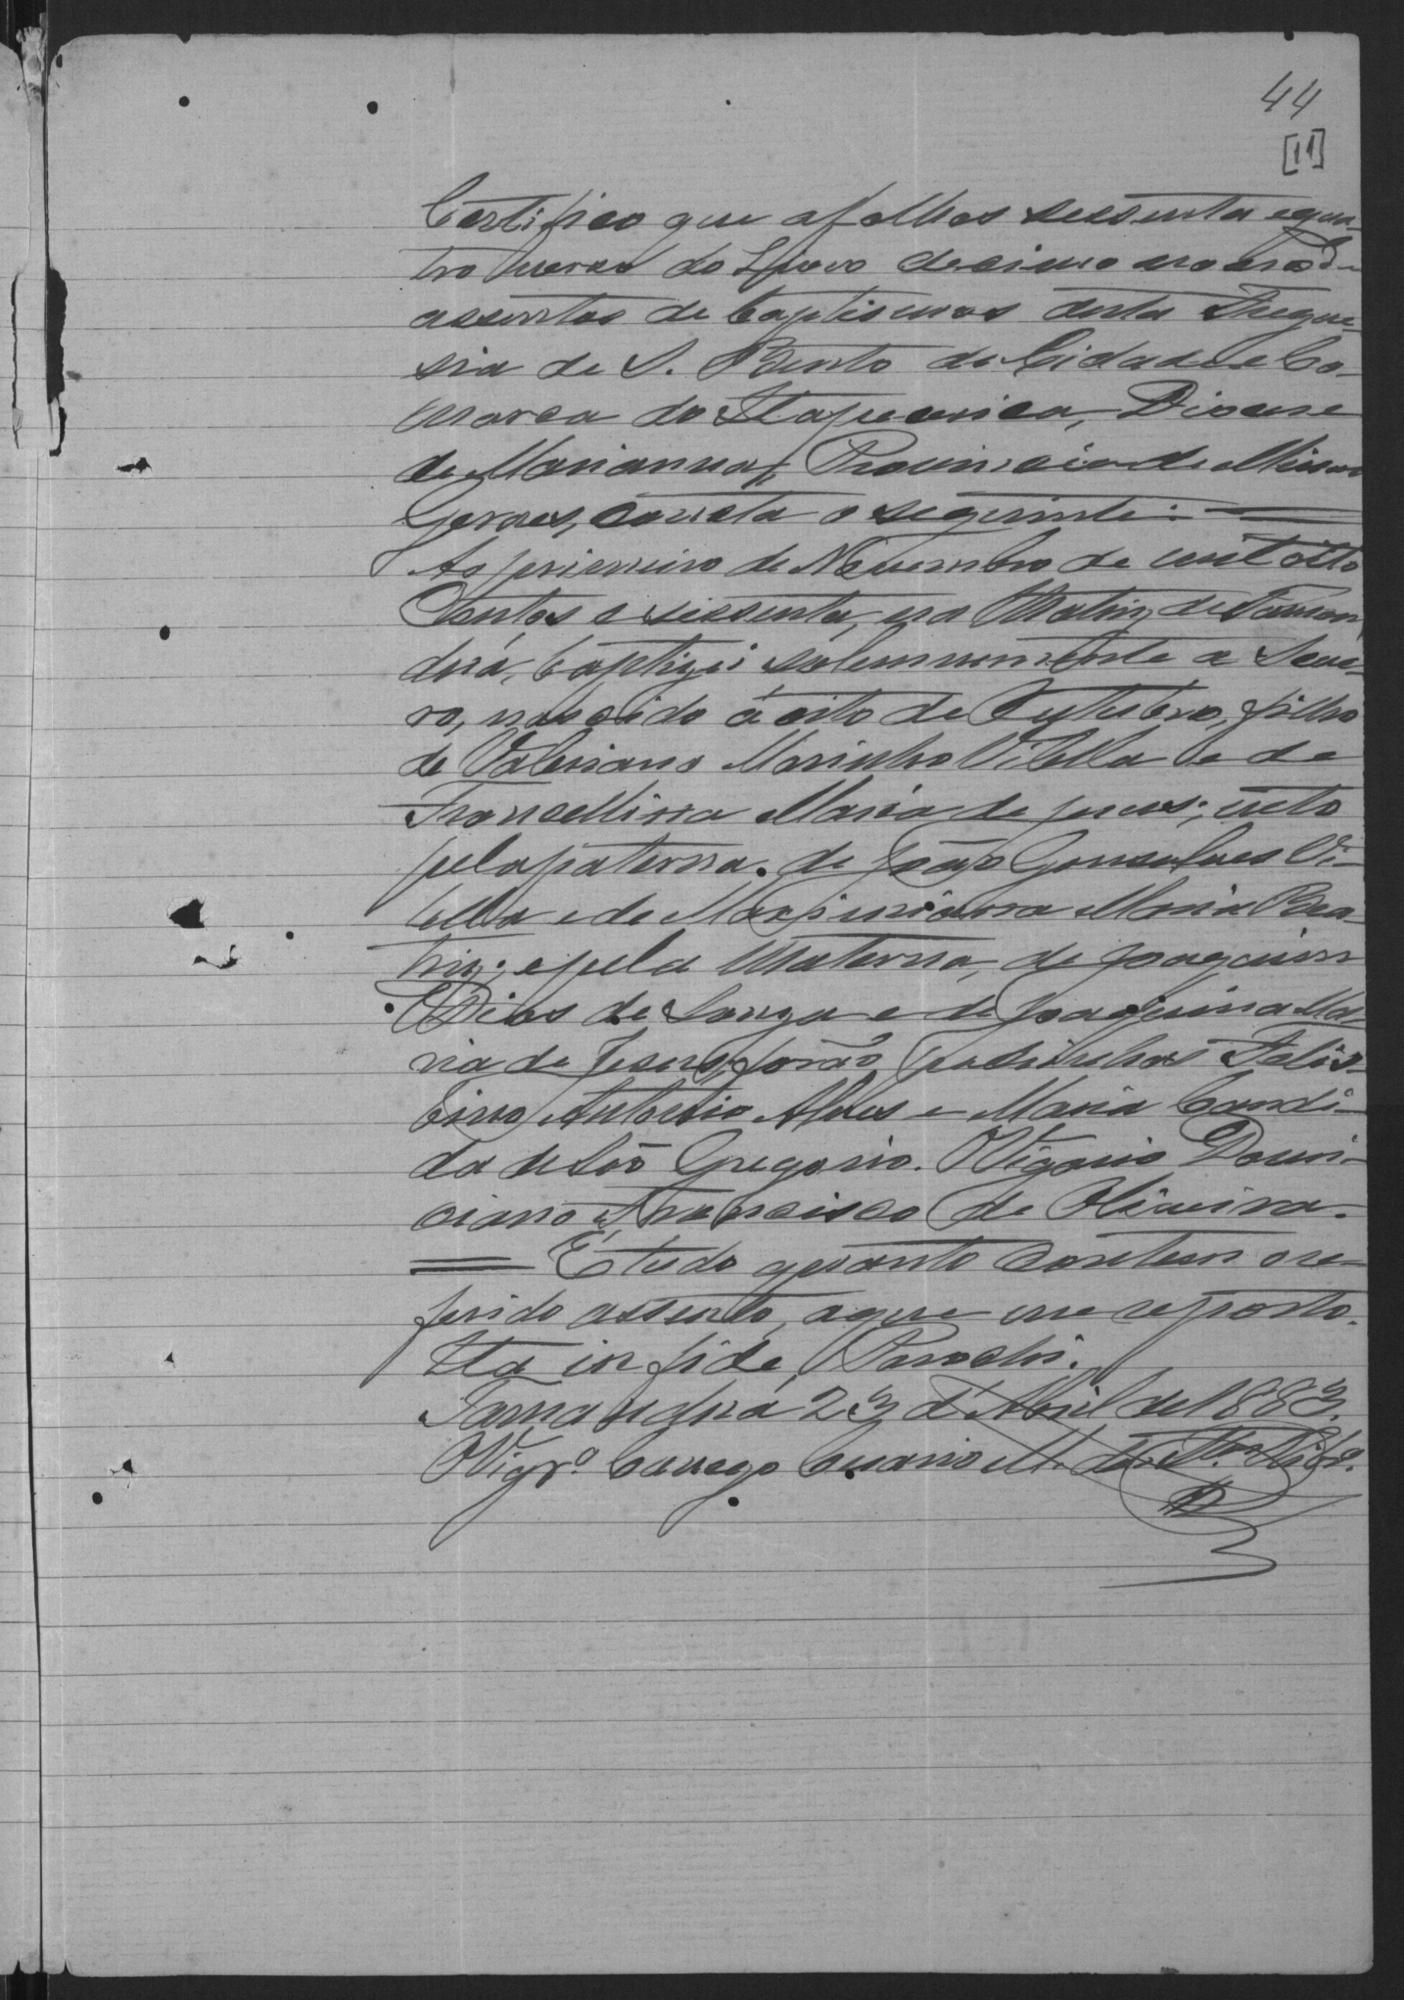 44
[11]
Certifico que a folhas sessenta e qua-
tro verso do Livro decimo nono de
assentos de baptismos desta Fregue-
sia de S. Bento da Cidade e Co-
marca do Itapecerica, Diocese
de Marianna, Provincia de Minas
Geraes, consta o seguinte: =
Ao primeiro de Novembro de mil oito
Centos e sessenta, na Matriz de Taman-
duá, baptizei solemnemente a Seve-
ro, nascido á oito de Outubro, filho
de Valeriano Marinho Vilella e de
Francellina Maria de Jesus; neto
pela paterna. de João Gonsalves Vi-
lella e de Maximiana Maria Bea-
triz; e pela Materna, de Joaquim
Dias de Souza e de Joaquina Ma-
ria de Jesus, forão padrinhos Felis-
bino Antonio Alves e Maria Candi-
da de São Gregorio. O Vigario Domi-
ciano Francisco de Oliveira.
= É tudo quanto contem o re-
ferido assento, a que me reporto.
Ita in fide Parochi.
Tamanduá 23 d'Abril de 1883.
O Vigrº. Conego Cesario M. dos